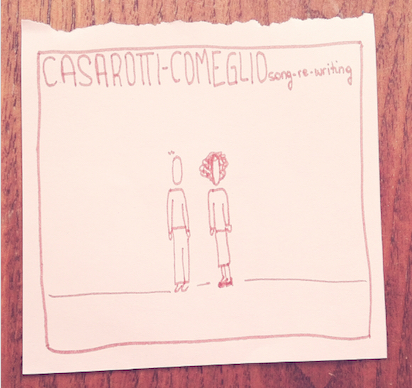 CASAROTTI-COMEGLIO song-re-writing